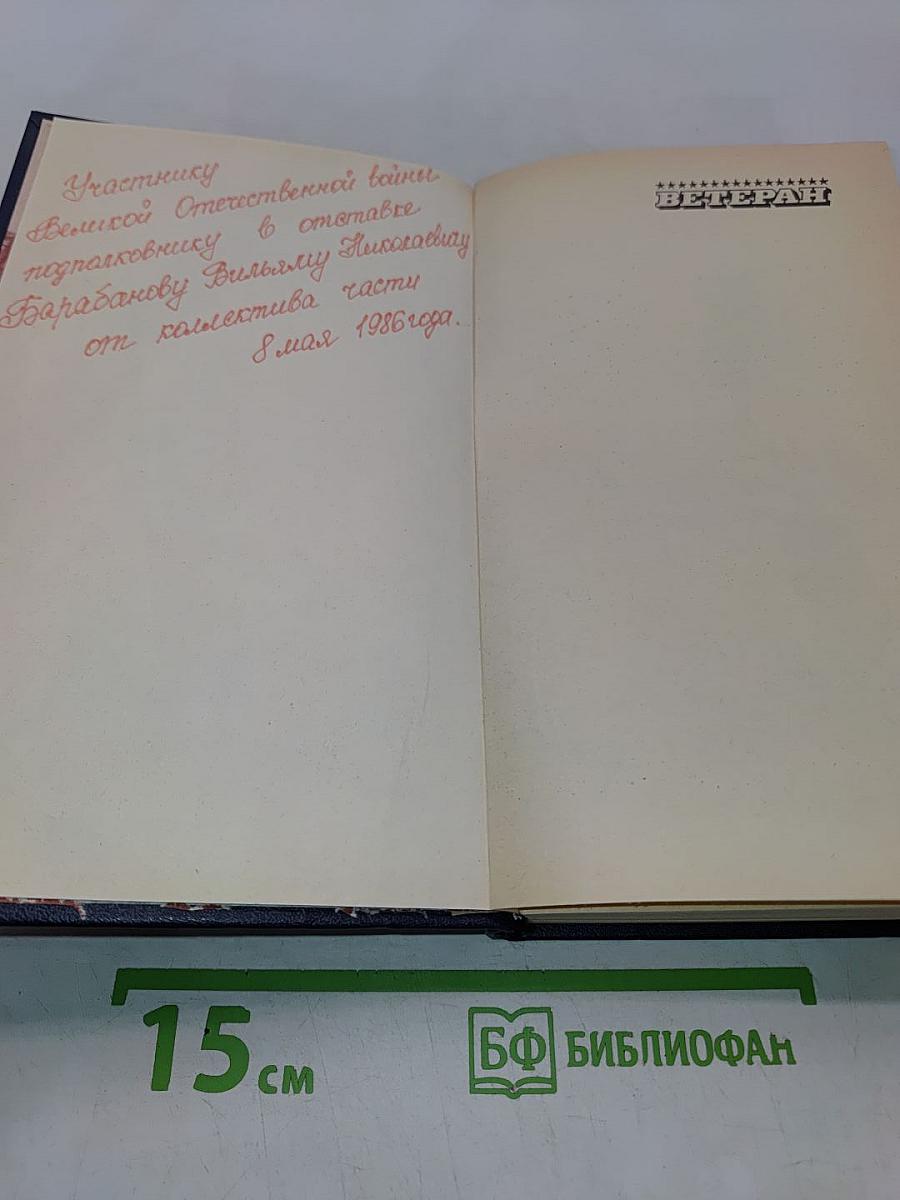 Участнику
Великой Отечественной войны
подполковнику в отставке
Барабанову Вильяму Николаевичу
от коллектива части
8 мая 1986 года.
ВЕТЕРАН
15 см
БФ БИБЛИОФАН